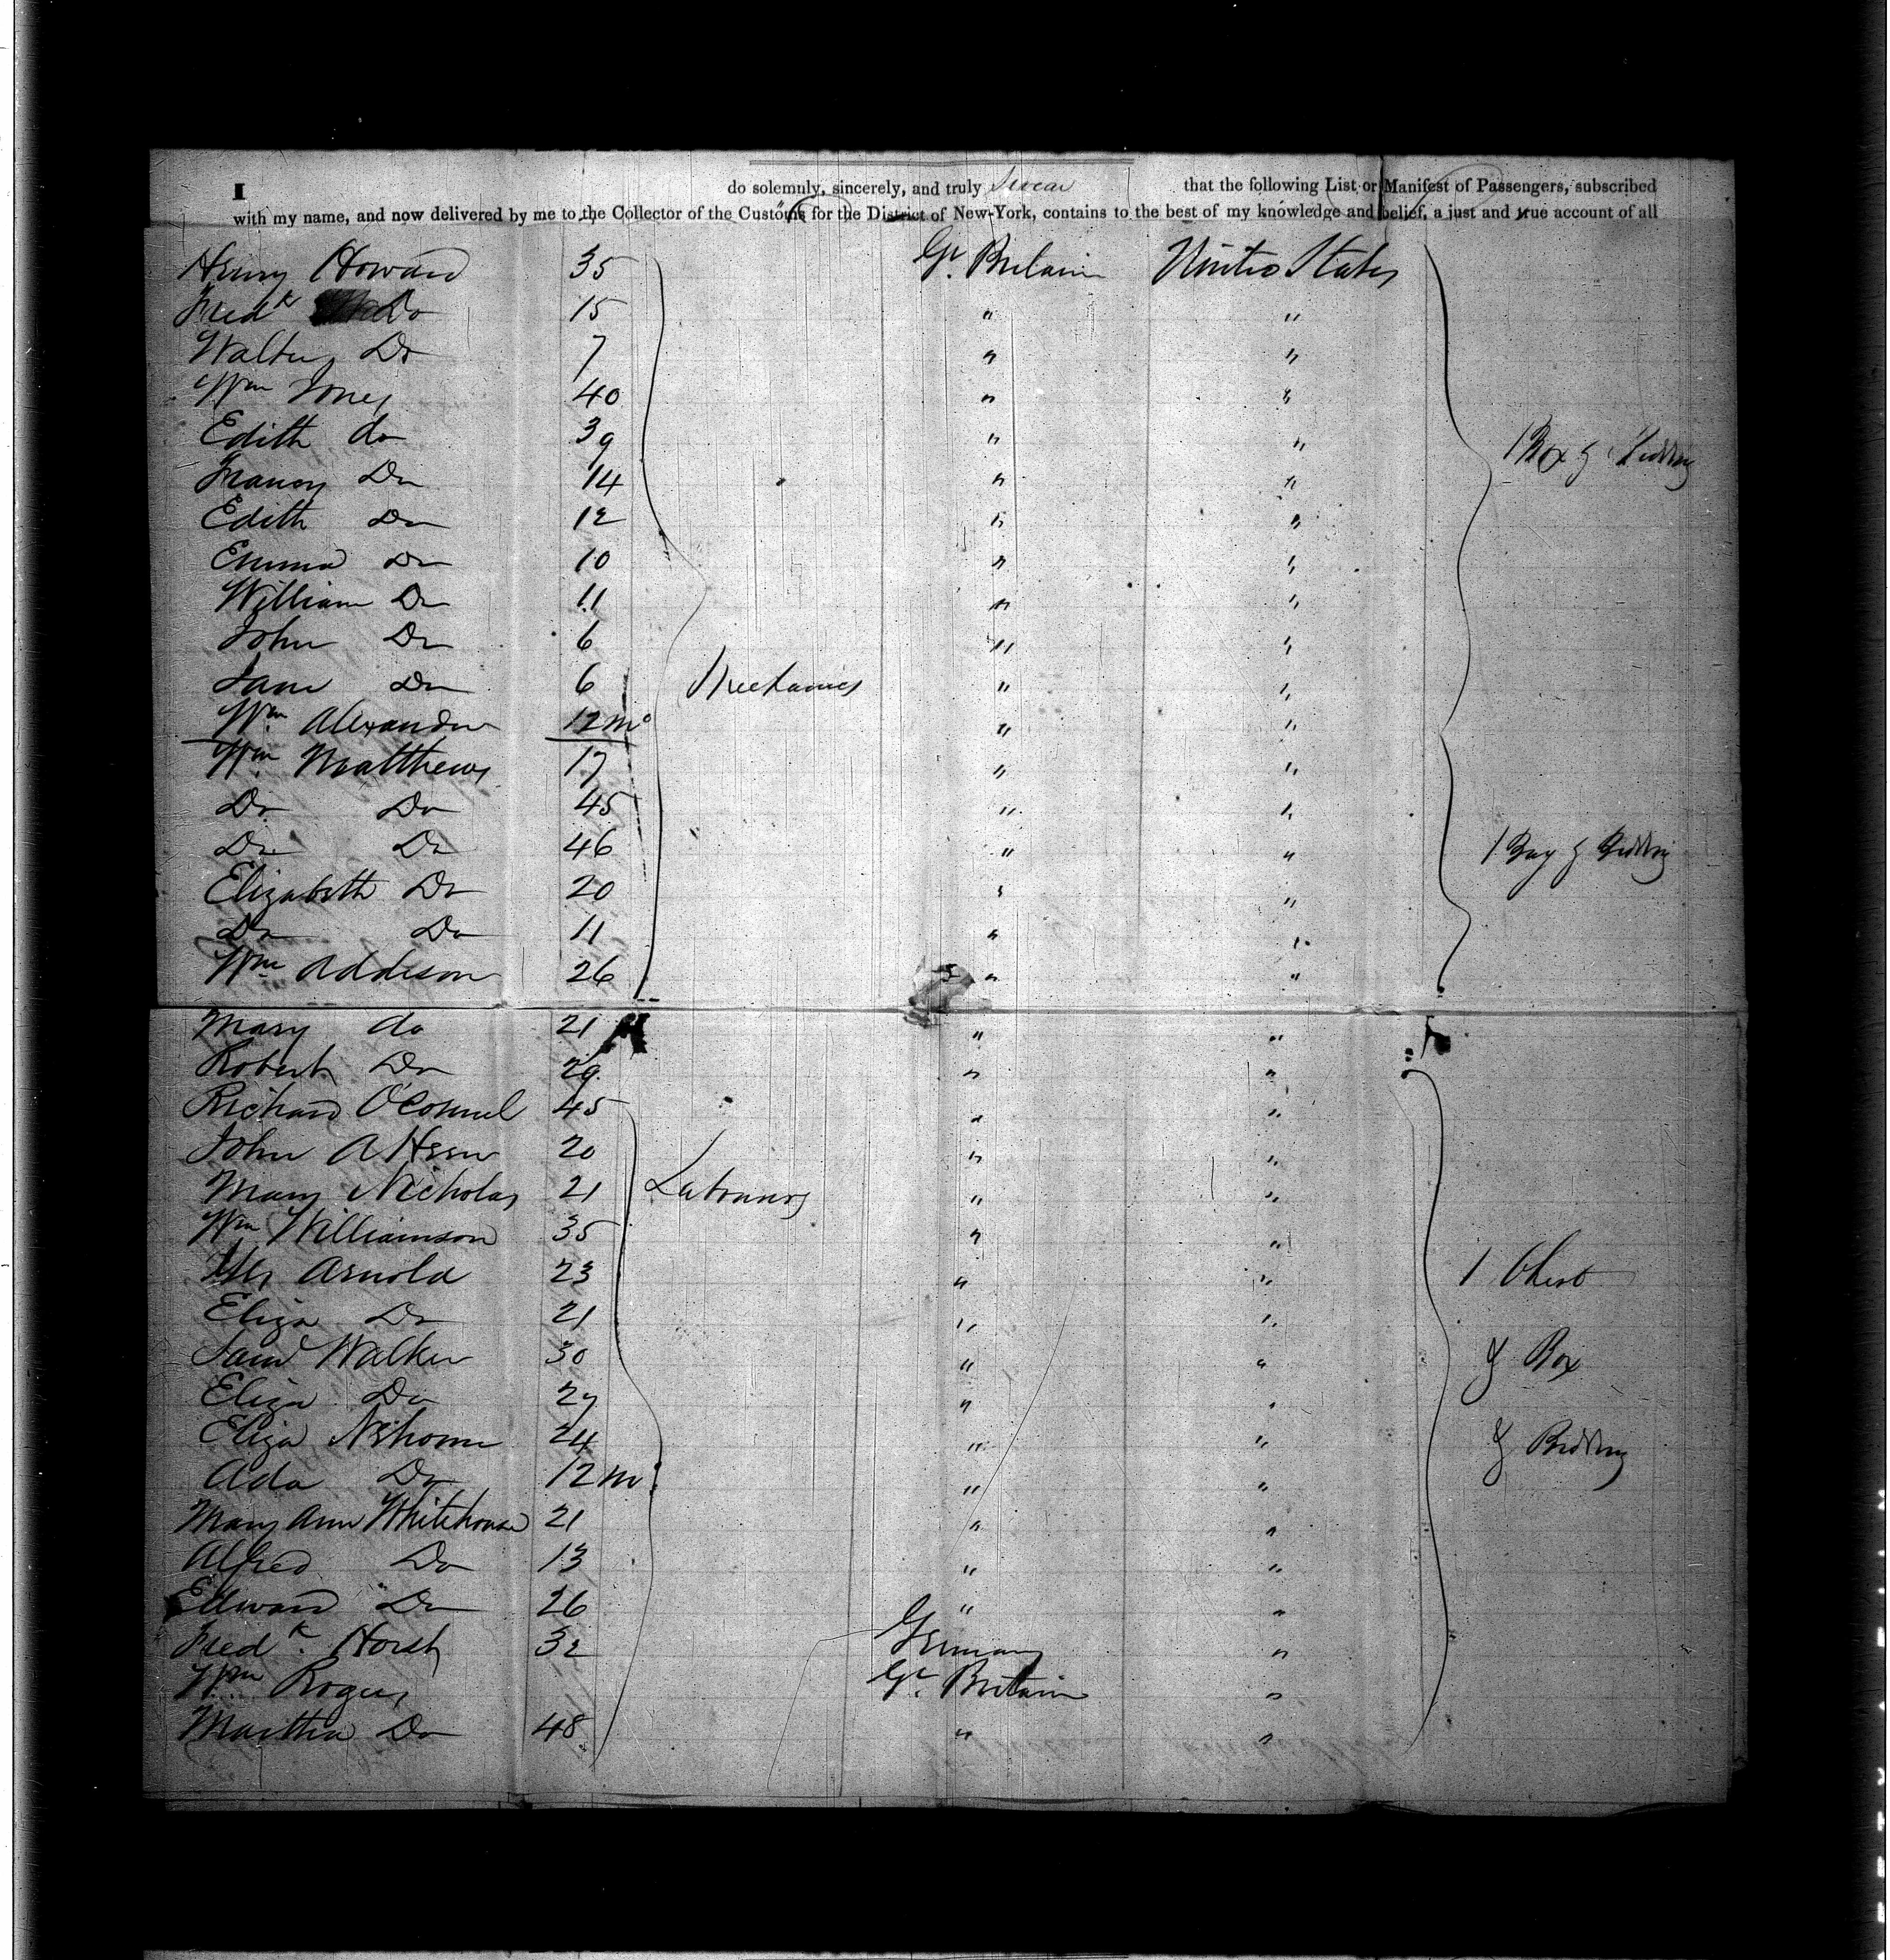 I do solemnly, sincerely, and truly swear that the following List or Manifest of Passengers, subscribed
with my name, and now delivered by me to the Collector of the Customs for the District of New-York, contains to the best of my knowledge and belief, a just and true account of all
Henry Howard 35 Gt. Britain United States
Fredk Do 15 " "
Walter Do 7 " "
Wm Jones 40 " "
Edith do 39 " " 1 Box & Bedding
Francy Do 14 " "
Edith Do 12 " "
Emma Do 10 " "
William Do 11 " "
John Do 6 " "
Jane Do 6 Mechanics " "
Wm Alexander 12 mo " "
Wm Matthews 17 " "
Do Do 45 " "
Do Do 46 " " 1 Bag & Bedding
Elizabeth Do 20 " "
Do Do 11 " "
Wm Addison 26 " "
Mary do 21 " "
Robert Do 29 " "
Richard O'Connel 45 " "
John 20 " "
Mary Nicholas 21 Labourers " "
Wm Williamson 35 " "
Arnold 23 " " 1 Chest
Eliza Do 21 " "
Saml Walker 30 " " & Box
Eliza Do 27 " "
Eliza 24 " " & Bedding
Ada Do 12 m " "
Mary Ann Whitehouse 21 " "
Alfred Do 13 " "
Edward Do 26 " "
Fredk. Horsh 32 Germany "
Wm Rogers Gt. Britain "
Martha Do 48 " "